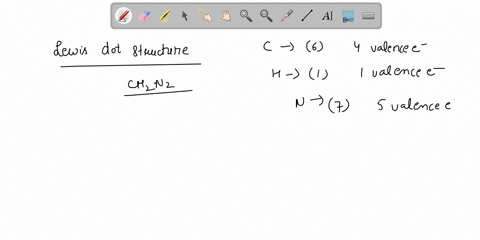 Lewis dot structure
CH2N2
C → (6) 4 valence e-
H → (1) 1 valence e-
N → (7) 5 valence e